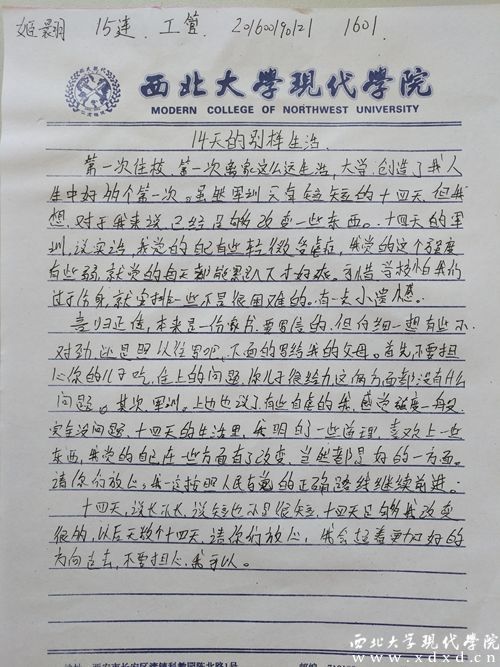 姬景羽 15连 工管 20160090121 1601
西北大学现代学院
MODERN COLLEGE OF NORTHWEST UNIVERSITY
14天的别样生活
第一次住校,第一次离家这么远生活,大学,创造了我人
生中好的个第一次。虽然军训只有短短的十四天,但我
想,对于我来说,已经足够改变一些东西。十四天的军
训,说实话,我觉的自己有些轻微受虐症,我觉的这个强度
有些弱,就觉的每天都能累趴下才好成。可惜学校怕我们
过于伤身,就安排一些不是很困难的。有一点小遗憾。
言归正传,本来是一份家书,要写信的,但仔细一想有些不
对劲,还是照以往写吧,下面的写给我的父母。首先不要担
心你的儿子吃,住上的问题,你儿子很给力,这俩方面都没有什么
问题。其次,军训。上边也说了有些自虐的我,感觉强度一般,
完全没问题,十四天的生活里,我明白了一些道理,喜欢上一些
东西,我觉的自己在一些方面有了改变,当然都是好的一方面。
请你们放心,我一定按照人民有范的正确路线继续前进。
十四天,说长不长,说短也不是很短,十四天足够我改变
很的,以后无数个十四天,请你们放心,我会趁着更加好的
方向走去,不要担心,我可以。
地址:西安市长安区滦镇科教园陈北路1号
西北大学现代学院
www.xdxd.cn